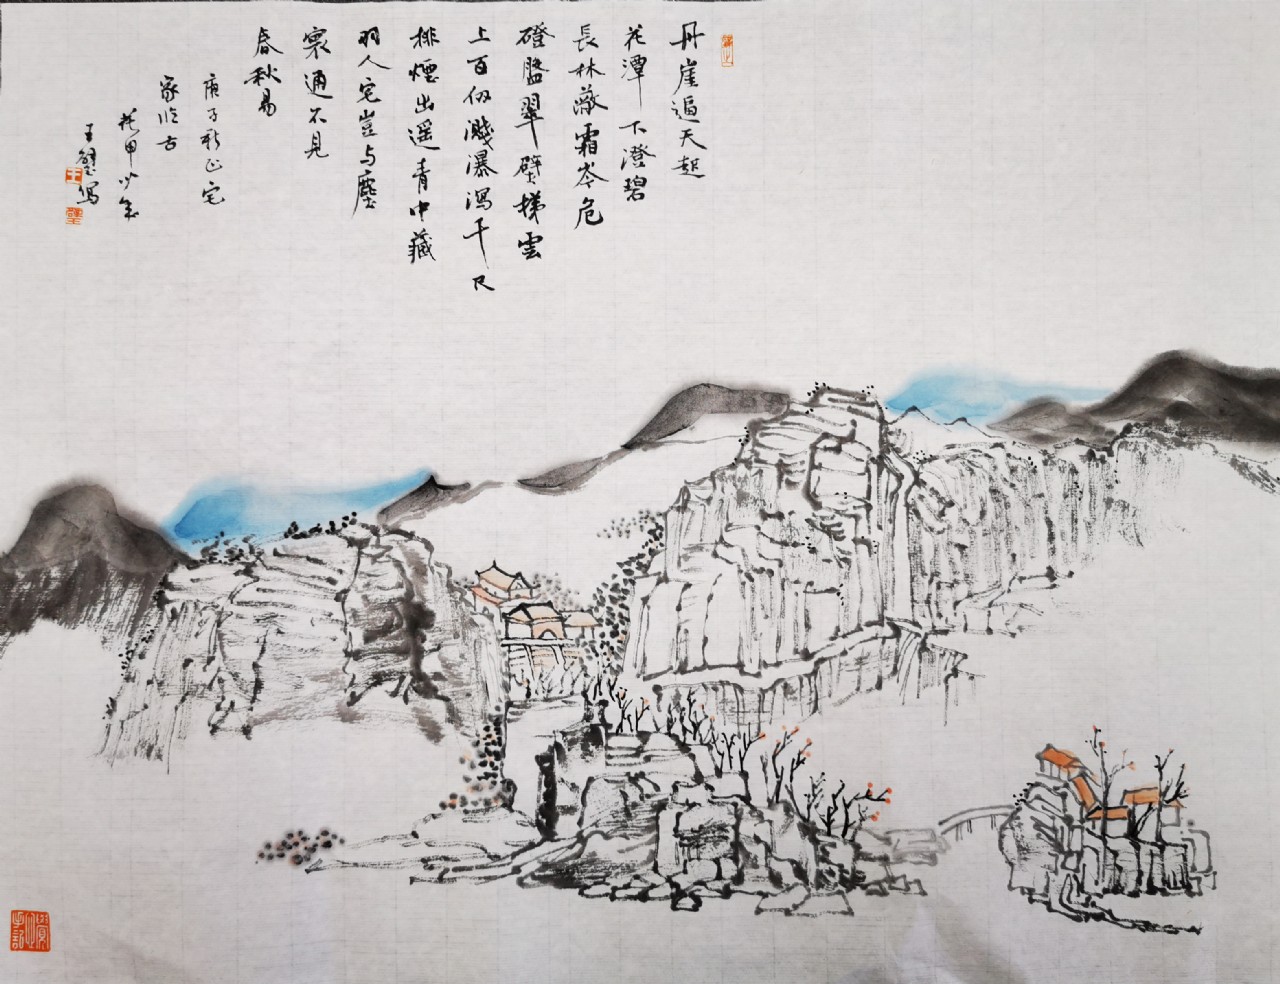 丹崖逼天起
花潭下澄碧
長林蔽霜岑危
磴盤翠壁梯雲
上百仞濺瀑瀉千尺
排煙出遥青中藏
羽人宅豈与塵
寰通不見
春秋易
庚子新正宅
家临古
花甲少年
王璧寫